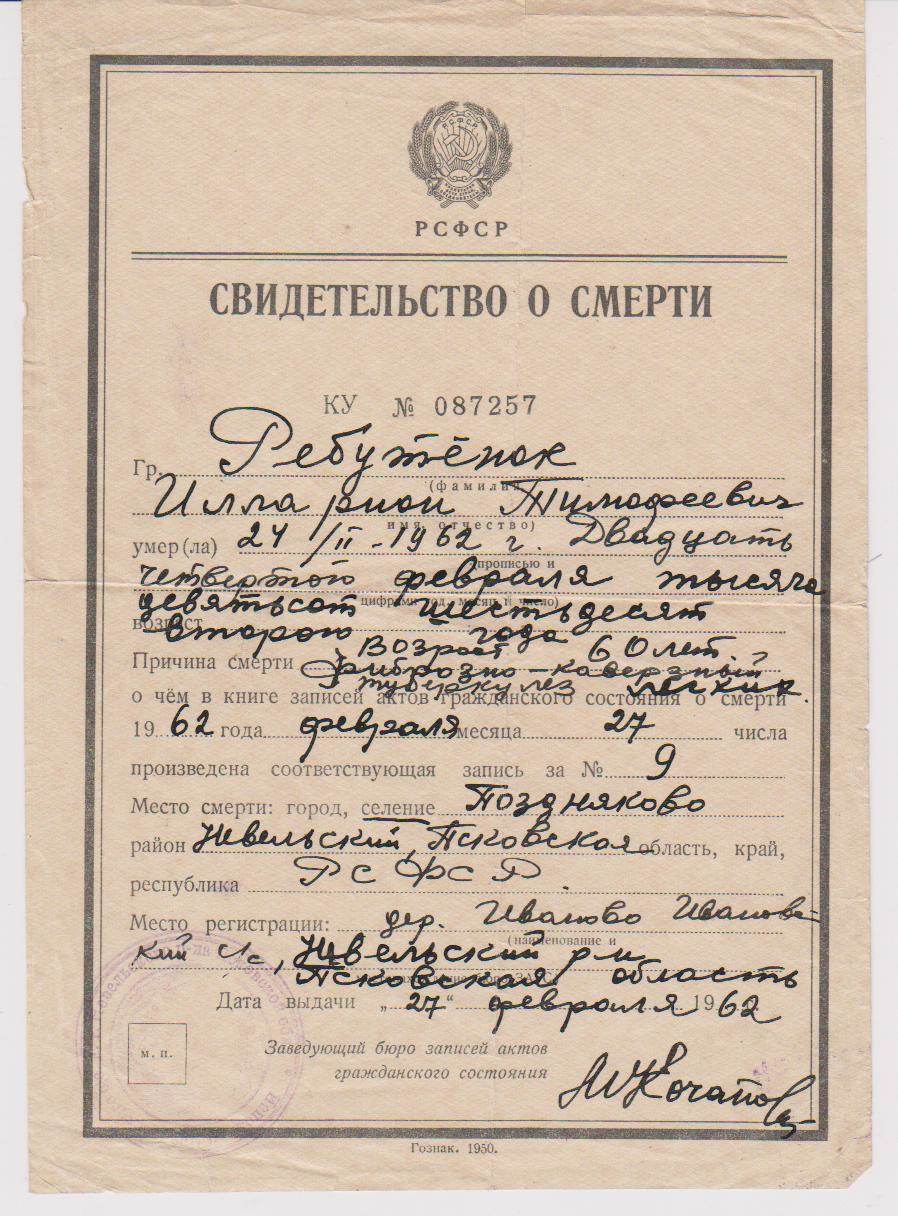 РСФСР
СВИДЕТЕЛЬСТВО О СМЕРТИ
КУ № 087257
Гр. Ребутёнок
(фамилия)
Илларион Тимофеевич
имя, отчество)
умер(ла) 24/II-1962 г. Двадцать
(прописью и
четвертого февраля тысяча
цифрами год, месяц и число)
девятьсот шестьдесят
возраст
второго года
Возраст 60 лет.
Причина смерти Фиброзно-кавернзный
туберкулез легких.
о чём в книге записей актов гражданского состояния о смерти
1962 года февраля месяца 27 числа
произведена соответствующая запись за № 9
Место смерти: город, селение Поздняково
район Невельский, Псковская область, край,
республика РСФСР
Место регистрации: дер. Иваново Иванов-
(наименование и
ский с/с, Невельский р-н
Псковская область
Дата выдачи „27“ февраля 1962
м. п.
Заведующий бюро записей актов
гражданского состояния
Гознак. 1950.